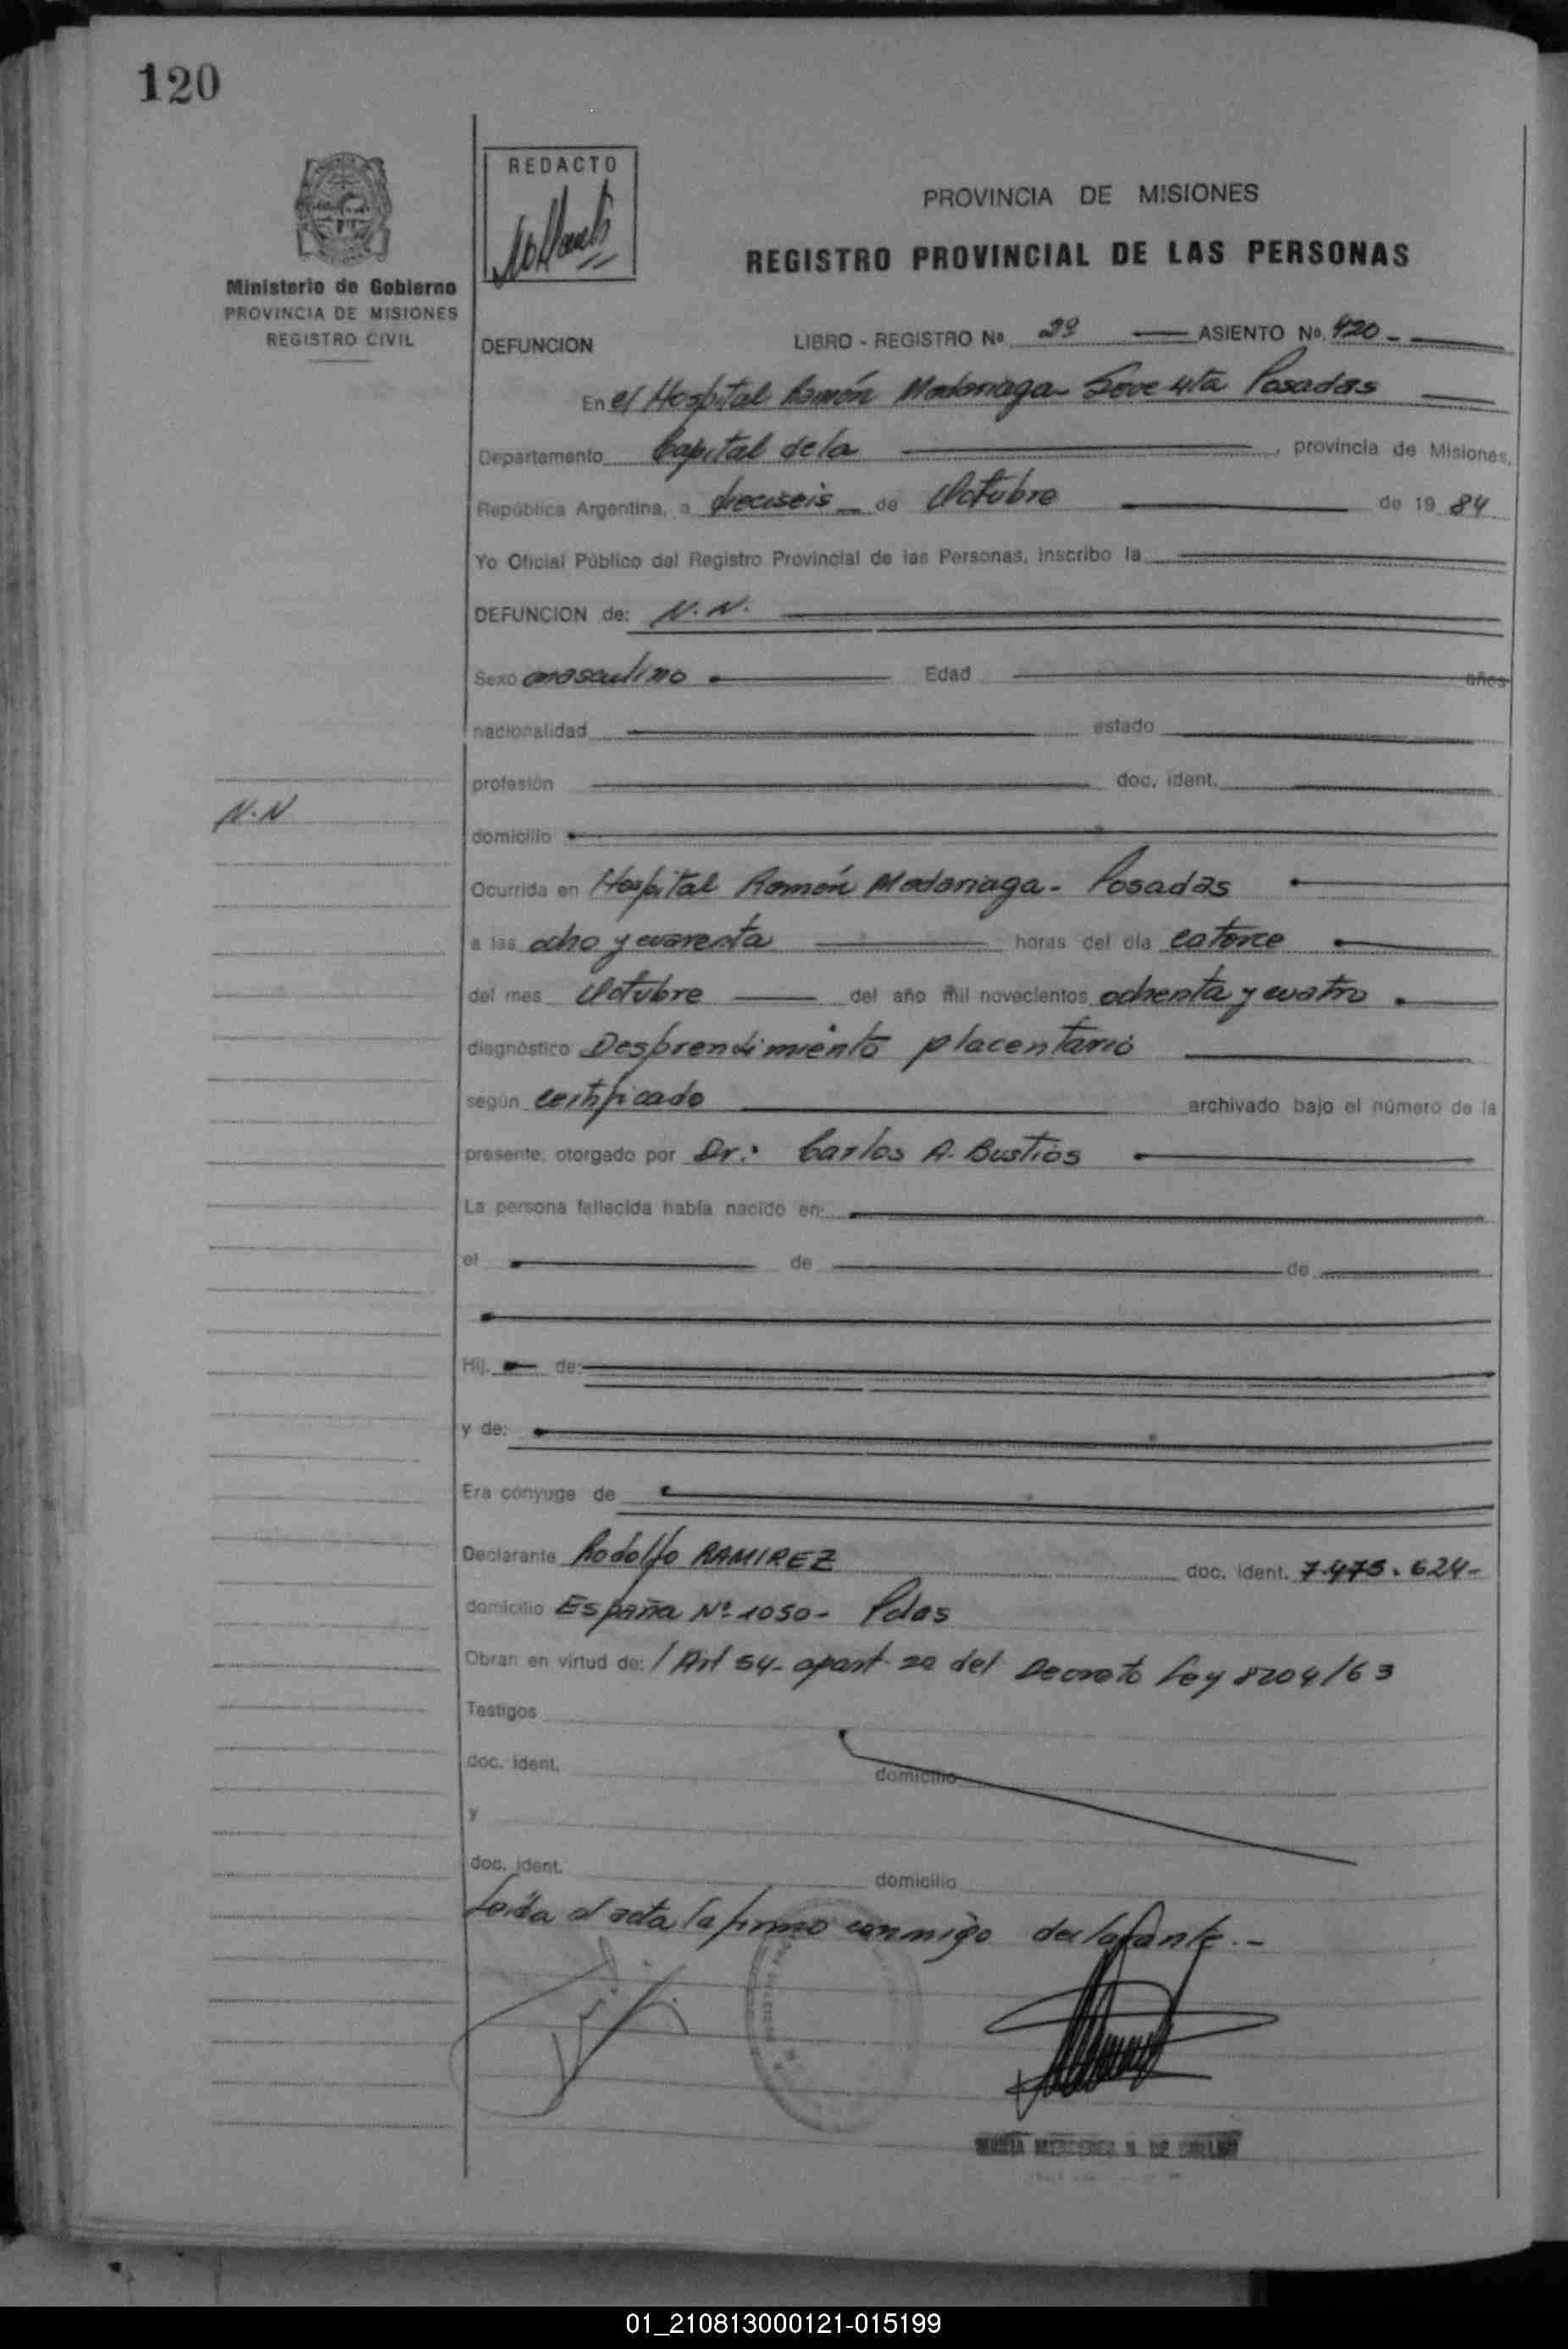 120
REDACTO
PROVINCIA DE MISIONES
REGISTRO PROVINCIAL DE LAS PERSONAS
Ministerio de Gobierno
PROVINCIA DE MISIONES
REGISTRO CIVIL
DEFUNCION LIBRO - REGISTRO No 2º ASIENTO No. 420 -
En el Hospital Ramón Madariaga Secc 4ta Posadas
Departamento Capital de la , provincia de Misiones,
República Argentina, a dieciseis de Octubre de 19 84
Yo Oficial Público del Registro Provincial de las Personas, inscribo la
DEFUNCION de: N.N.
Sexo masculino Edad años
nacionalidad estado
profesión doc. ident.
N.N
domicilio
Ocurrida en Hospital Ramón Madariaga - Posadas
a las ocho y cuarenta horas del día catorce
del mes Octubre del año mil novecientos ochenta y cuatro
diagnóstico Desprendimiento placentario
según certificado archivado bajo el número de la
presente, otorgado por Dr. Carlos A. Bustios
La persona fallecida había nacido en:
el de de
Hij. de:
y de:
Era cónyuge de
Declarante Rodolfo RAMIREZ doc. ident. 7.475.624-
domicilio España Nº 1050- Pdas
Obran en virtud de: / Art 54- apart 2º del Decreto Ley 8204/63
Testigos
doc. ident. domicilio
y
doc. ident. domicilio
Leída el acta la firma conmigo declarante.-
01_210813000121-015199